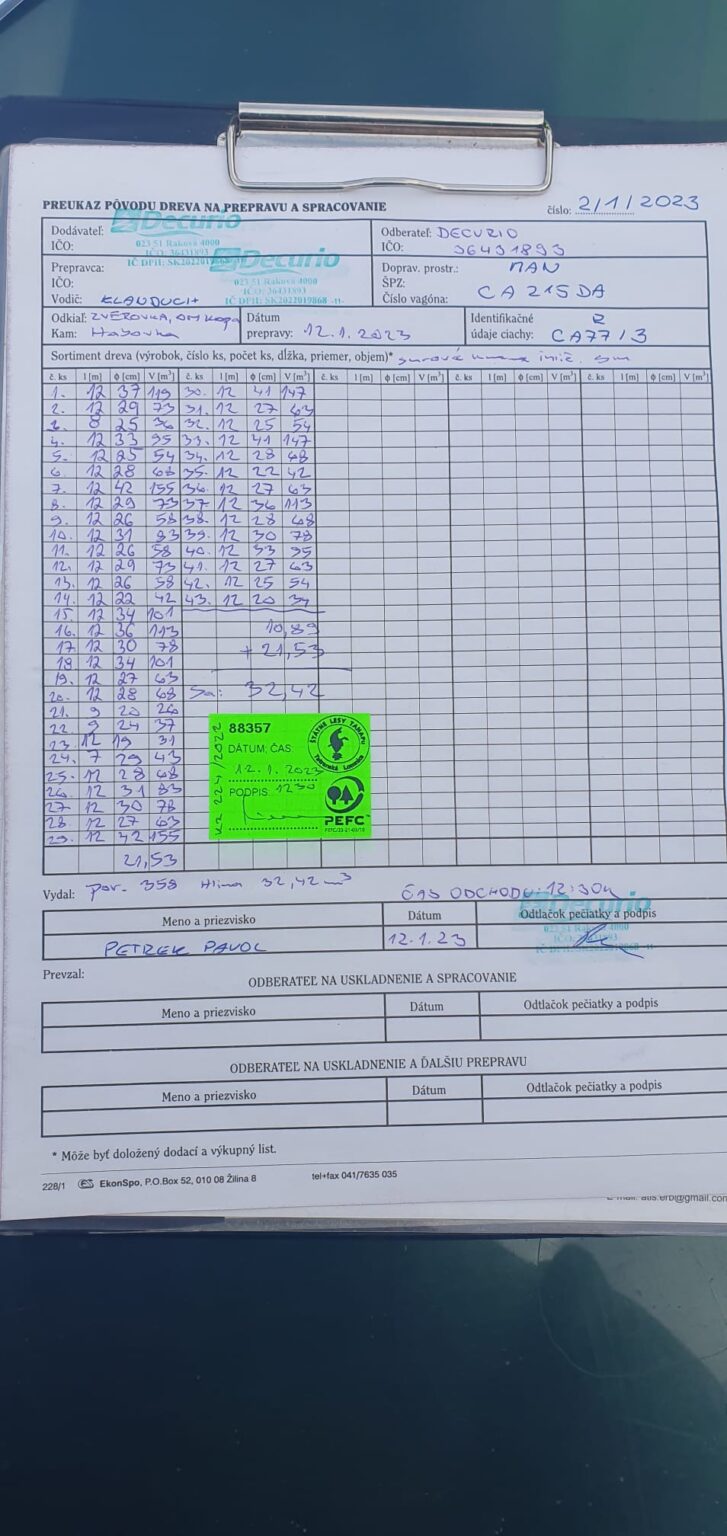 PREUKAZ PÔVODU DREVA NA PREPRAVU A SPRACOVANIE číslo: 2/1/2023
Dodávateľ: Decurio Odberateľ: DECURIO
IČO: 023 51 Raková 4000 IČO: 36431893
IČO: 36431893
IČ DPH: SK2022019868
Prepravca: Decurio Doprav. prostr.: MAN
IČO: 023 51 Raková 4000 ŠPZ: CA 215 DA
IČO: 36431893
Vodič: IČ DPH: SK2022019868 -11- Číslo vagóna:
Odkiaľ: ZVEROVKA, Dátum Identifikačné
Kam: Habovka prepravy: 12.1.2023 údaje ciachy: CA77/3
Sortiment dreva (výrobok, číslo ks, počet ks, dĺžka, priemer, objem)* surová
č. ks l [m] ϕ [cm] V [m³] č. ks l [m] ϕ [cm] V [m³] č. ks l [m] ϕ [cm] V [m³] č. ks l [m] ϕ [cm] V [m³] č. ks l [m] ϕ [cm] V [m³]
1. 12 37 119 30. 12 41 147
2. 12 29 73 31. 12 27 63
3. 8 25 36 32. 12 25 54
4. 12 33 95 33. 12 41 147
5. 12 25 54 34. 12 28 68
6. 12 28 68 35. 12 22 42
7. 12 42 155 36. 12 27 63
8. 12 29 73 37 12 36 113
9. 12 26 58 38. 12 28 68
10. 12 31 83 39. 12 30 78
11. 12 26 58 40. 12 33 95
12. 12 29 73 41. 12 27 63
13. 12 26 58 42. 12 25 54
14. 12 22 42 43. 12 20 34
15. 12 34 101
16. 12 36 113 10,89
17 12 30 78 + 21,53
18 12 34 101
19. 12 27 63
20. 12 28 68 Sa: 32,42
21. 9 20 26
22. 9 24 37
23. 12 19 31
24. 7 29 43
25. 12 28 68
26. 12 31 83
27 12 30 78
28. 12 27 63
29. 12 42 155
21,53
88357
ŠTÁTNE LESY TANAPU
Tatranská Lomnica
DÁTUM, ČAS:
12.1.2023
PODPIS: 1230
PEFC™
Vydal: por. 358 Hlina 32,42 m³ ČAS ODCHODU: 12:30h
Decurio
Meno a priezvisko Dátum Odtlačok pečiatky a podpis
PETREK PAVOL 12.1.23
Prevzal: ODBERATEĽ NA USKLADNENIE A SPRACOVANIE
Meno a priezvisko Dátum Odtlačok pečiatky a podpis
ODBERATEĽ NA USKLADNENIE A ĎALŠIU PREPRAVU
Meno a priezvisko Dátum Odtlačok pečiatky a podpis
* Môže byť doložený dodací a výkupný list.
228/1 EkonSpo, P.O.Box 52, 010 08 Žilina 8 tel+fax 041/7635 035